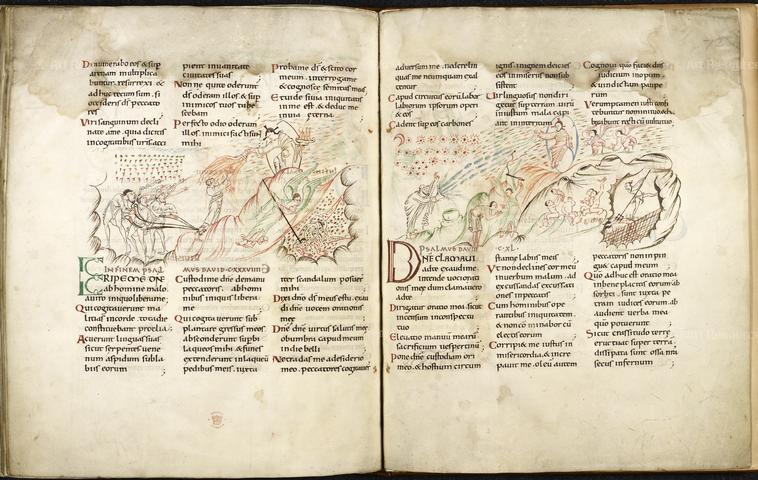 Dinumerabo eos & sup
arenam multiplica
buntur. resurrexi &
adhuc tecum sum. si
occideris ds peccato
res
Viri sanguinum decli
nate a me. quia dicitis
in cogitatione
pient in uanitate
ciuitates suas
Nonne qui te oderunt
ds oderam illos. & sup
inimicos tuos tabe
scebam
Perfecto odio oderam
illos. inimici facti sunt
mihi
Proba me ds & scito cor
meum. interroga me
& cognosce semitas meas
Et uide si uia iniquitatis
in me est. & deduc me
in uia &erna
IN FINEM PSAL
MUS DAVID CXXXVIIII
ERIPE ME DNE
ab homine malo.
a uiro iniquo libera me
Qui cogitauerunt ma
litias in corde. tota die
constituebant proelia
Acuerunt linguas suas
sicut serpentes. uene
num aspidum sub la
biis eorum
Custodi me dne de manu
peccatoris. ab homi
nibus iniquis libera
me
Qui cogitauerunt sub
plantare gressus meos
absconderunt supbi
laqueos mihi. & funes
extenderunt in laqueu
pedibus meis. iuxta
iter scandalum posuer
mihi
Dixi dno ds meus es tu. exau
di dne uocem orationis
meę
Dne dne uirtus salutis meę
obumbra caput meum
in die belli
Ne tradas me a desiderio
meo. peccatori. cogitauer
aduersum me. ne derelin
quas me ne umquam exal
tentur
Caput circuitus eoru labor
labiorum ipsorum operi
& eos
Cadent sup eos carbones
ignis. in ignem deicies
eos in miseriis non sub
sistent
Vir linguosus non diri
getur sup terram. uirum
iniustum mala capi
ent in interitum
Cognoui quia faci& dns
iudicium inopum
& uindictam paupe
rum
Verumptamen iusti confi
tebuntur nomini tuo &
habitabunt recti cu uultu tuo
PSALMUS DAVID
CXL
DNE CLAMAUI
ad te exaudi me.
intende uoci oratio
nis meę dum clamauero
ad te
Dirigatur oratio mea. sicut
incensum in conspectu
tuo
Eleuatio manuu mearu
sacrificium uespertinu
Pone dne custodiam ori
meo. & hostium circum
stantię labiis meis
Vt non declines cor meu
in uerbum malum. ad
excusandas excusati
ones in peccatis
Cum hominibus ope
rantibus iniquitatem.
& non cominabor cu
electis eorum
Corripi& me iustus in
misericordia. & incre
pauit me. oleu autem
peccatoris non inpin
gu& caput meum
Quo adhuc est oratio mea
in beneplacitis eorum. ab
sorbti sunt iuxta pe
tram iudices eorum. ab
audient uerba mea
quo potuerunt
Sicut crassitudo terrę
eructuat super terra.
dissipata sunt ossa nra
secus infernum